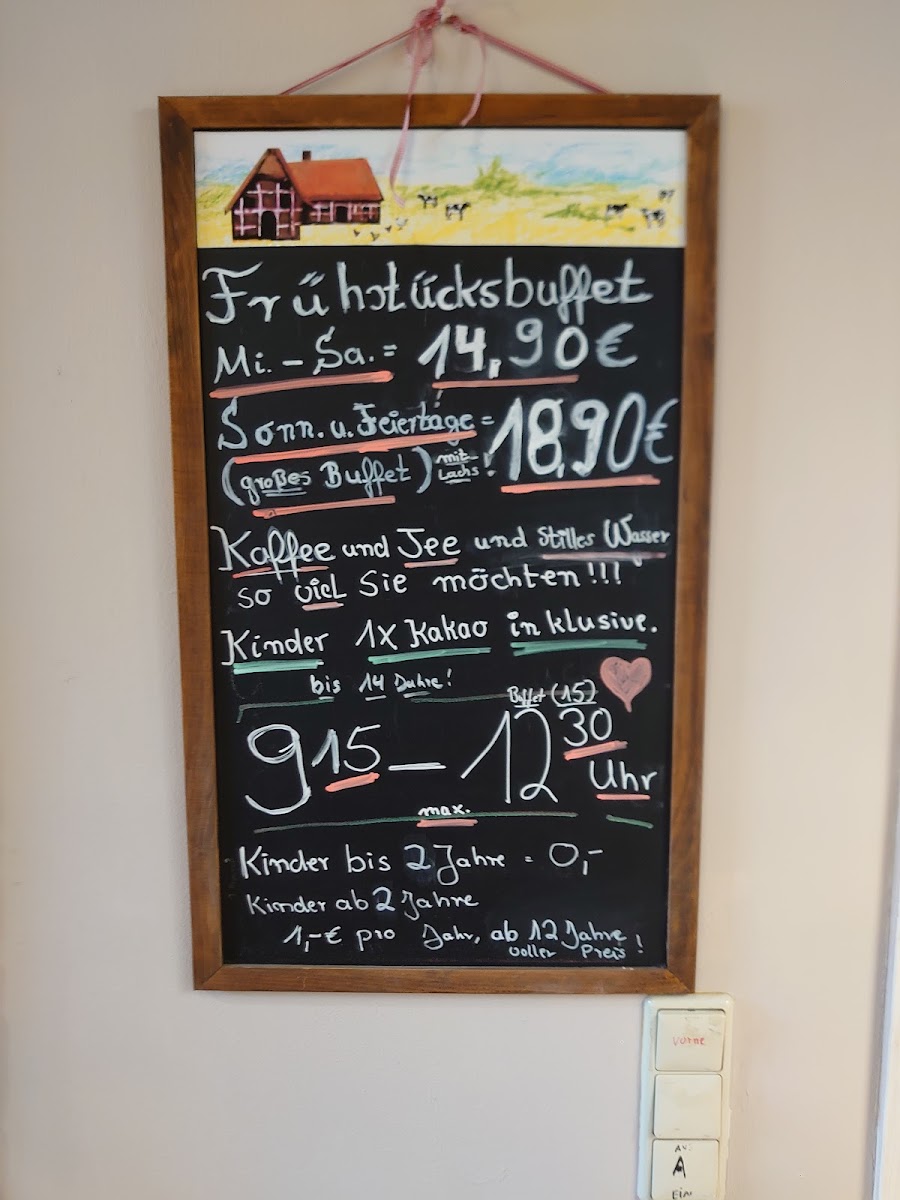 Frühstücksbuffet
Mi. - Sa. = 14,90€
Sonn. u. Feiertage = 18,90€
(großes Buffet) mit Lachs!
Kaffee und Tee und Stilles Wasser
so viel Sie möchten!!!
Kinder 1x Kakao inklusive.
bis 14 Jahre!
Buffet (15)
9 15 - 12 30
Uhr
max.
Kinder bis 2 Jahre = 0,-
Kinder ab 2 Jahre
1,-€ pro Jahr, ab 12 Jahre
voller Preis!
vorne
A
EIN